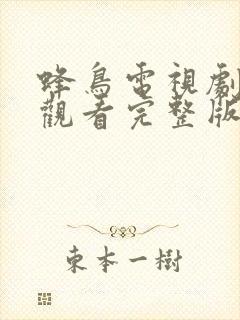 蜂鳥電視劇
觀看完整版
東本一樹